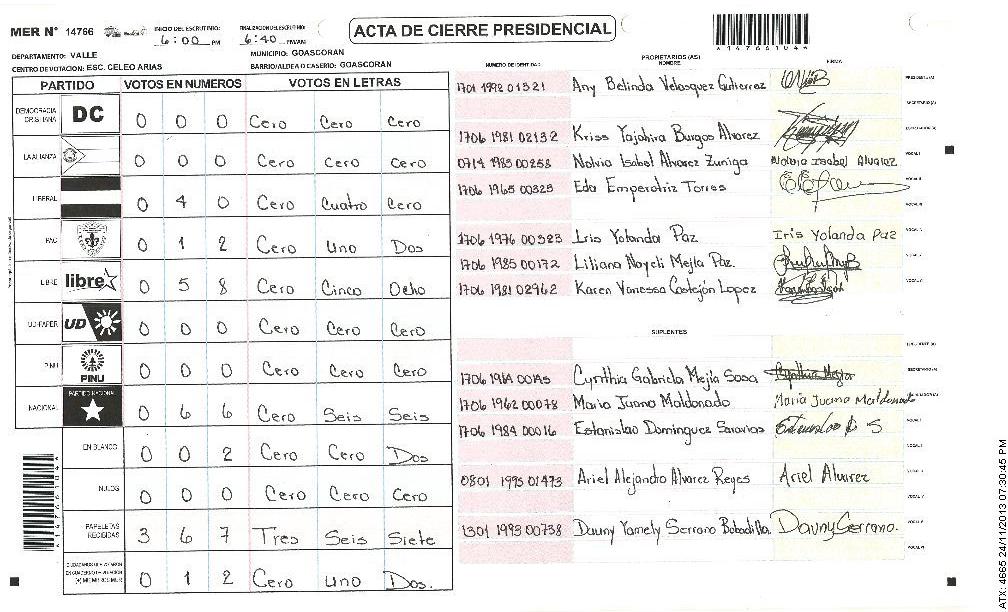 MER N° 14766
INICIO DEL ESCRUTINIO: 6:00 PM
FINALIZACION DEL ESCRUTINIO: 6:40 PM/AM
ACTA DE CIERRE PRESIDENCIAL
*14766104*
DEPARTAMENTO: VALLE
MUNICIPIO: GOASCORAN
CENTRO DE VOTACION: ESC. CELEO ARIAS
BARRIO/ALDEA O CASERIO: GOASCORAN
PARTIDO VOTOS EN NUMEROS VOTOS EN LETRAS
DEMOCRACIA CRISTIANA DC 0 0 0 Cero Cero Cero
LA ALIANZA 0 0 0 Cero Cero Cero
LIBERAL 0 4 0 Cero Cuatro Cero
PAC 0 1 2 Cero Uno Dos
LIBRE libre 0 5 8 Cero Cinco Ocho
UD-FAPER UD 0 0 0 Cero Cero Cero
PINU PINU 0 0 0 Cero Cero Cero
NACIONAL PARTIDO NACIONAL 0 6 6 Cero Seis Seis
EN BLANCO 0 0 2 Cero Cero Dos
NULOS 0 0 0 Cero Cero Cero
PAPELETAS RECIBIDAS 3 6 7 Tres Seis Siete
CIUDADANOS QUE VOTARON EN CUADERNO DE VOTACION (+) MIEMBROS MER 0 1 2 Cero Uno Dos.
NUMERO DE IDENTIDAD PROPIETARIOS (AS) NOMBRE FIRMA
1701 1992 01321 Any Belinda Velasquez Gutierrez PRESIDENTE(A)
SECRETARIO(A)
1706 1981 02132 Kriss Yajahira Burgos Alvarez ESCRUTADOR(A)
0714 1985 00258 Nolvia Isabel Alvarez Zuniga Nolvia Isabel Alvarez VOCAL I
1706 1965 00325 Eda Emperatriz Torres VOCAL II
VOCAL III
1706 1976 00323 Iris Yolanda Paz Iris Yolanda Paz
1706 1985 00172 Liliana Nayeli Mejia Paz.
1706 1981 02962 Karen Vanessa Castejón Lopez
SUPLENTES
PRESIDENTE (A)
Cynthia Gabriela Mejia Sosa SECRETARIO(A)
1706 1962 00078 Maria Juana Maldonado Maria Juana Maldonado
1706 1984 00016 Estanislao Dominguez Saravias VOCAL I
0801 1993 01473 Ariel Alejandro Alvarez Reyes Ariel Alvarez
VOCAL V
1301 1993 00738 Dauny Yamely Serrano Bobadilla. Dauny Serrano.
VOCAL VI
ATX: 4665 24/11/2013 07:30:45 PM